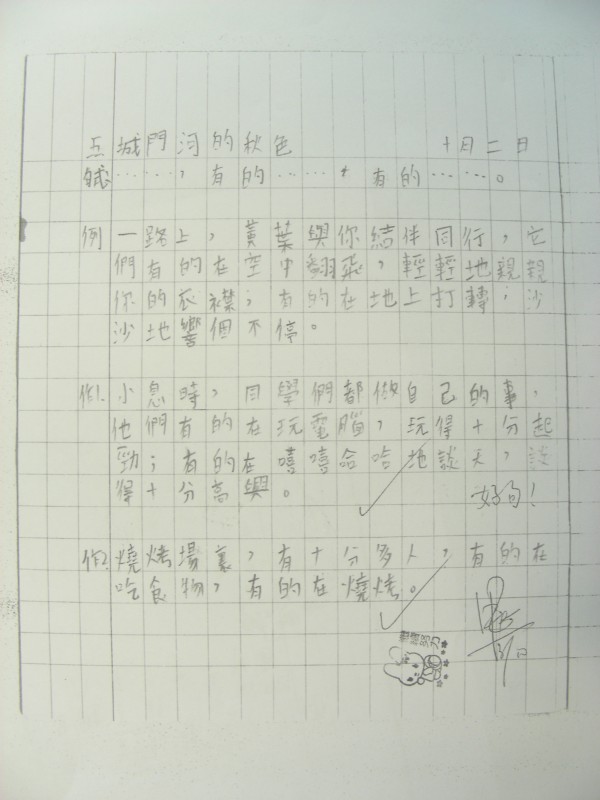 五 城門河的秋色 十月二日
……,有的……,有的……。
例 一路上,黃葉與你結伴同行,它
們有的在空中翻飛,輕輕地親親
你的衣襟;有的在地上打轉;沙
沙地響個不停。
作1. 小息時,同學們都做自己的事,
他們有的在玩電腦,玩得十分起
勁;有的在嘻嘻哈哈地談天,談
得十分高興。
好句!
作2. 燒烤場裏,有十分多人,有的在
吃食物,有的在燒烤。
繼續努力